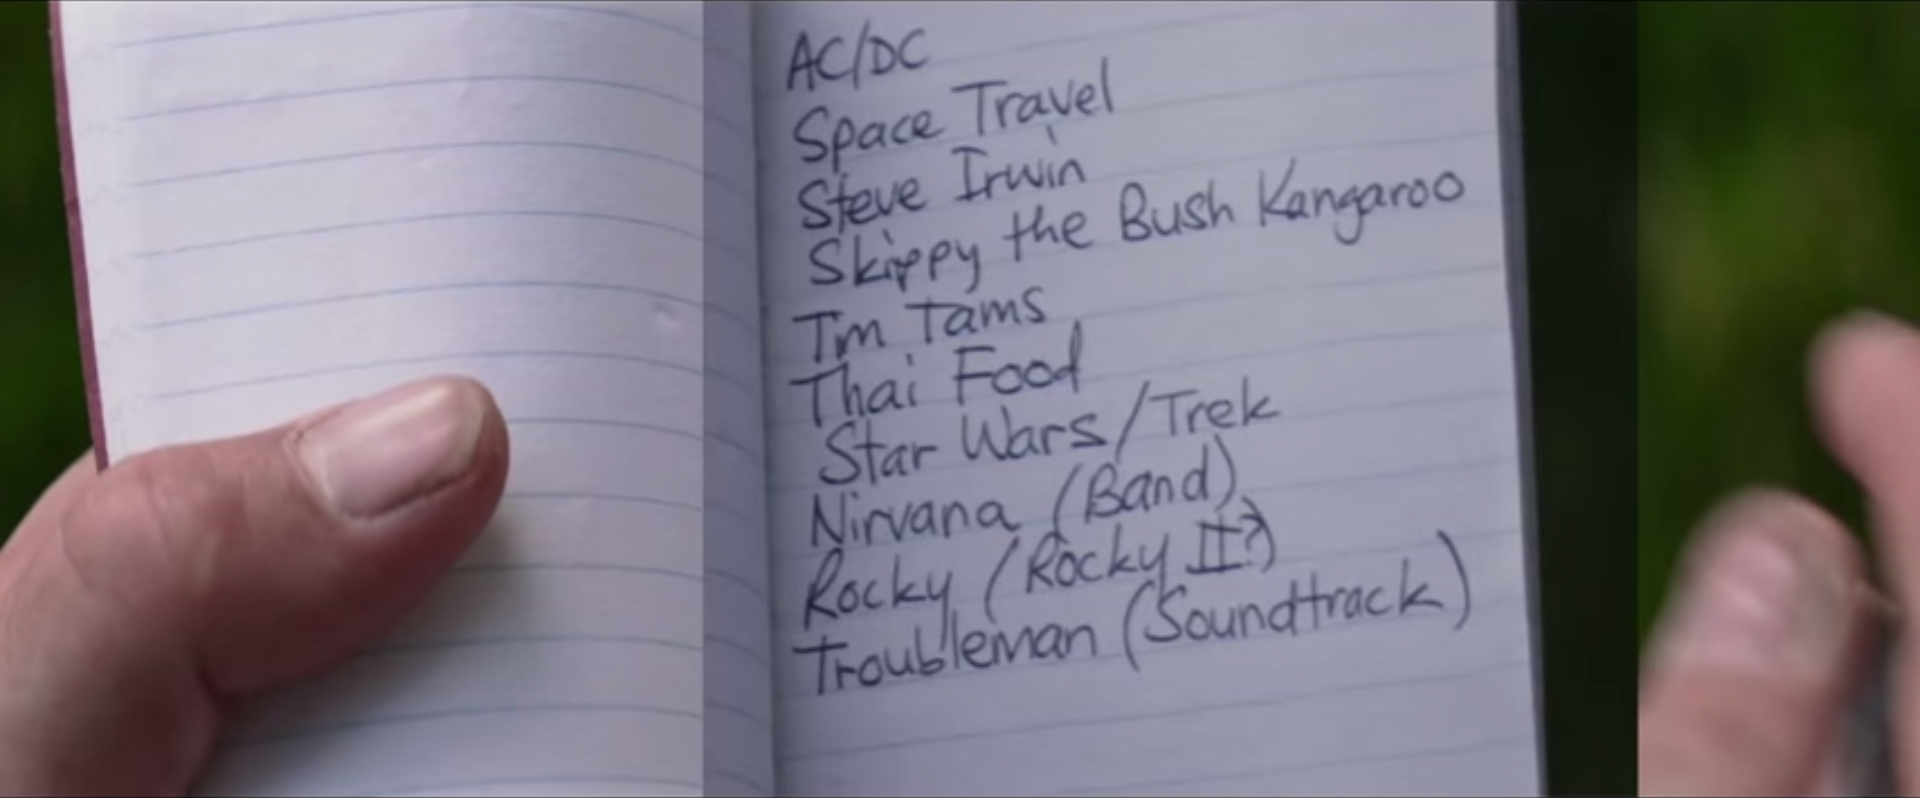 AC/DC
Space Travel
Steve Irwin
Skippy the Bush Kangaroo
Tim Tams
Thai Food
Star Wars/Trek
Nirvana (Band)
Rocky (Rocky II?)
Troubleman (Soundtrack)